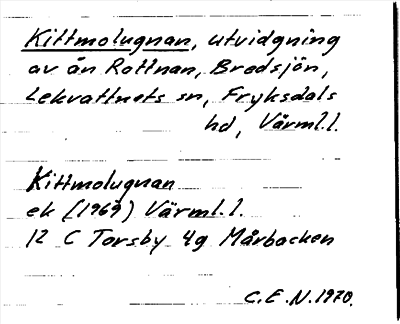 Kittmolugnan, utvidgning
av ån Rottnan, Bredsjön,
Lekvattnets sn, Fryksdals
hd, Värml.l.
Kittmolugnan
ek (1969) Värml.l.
12 C Torsby 4g Mårbacken
C.E.N.1970.